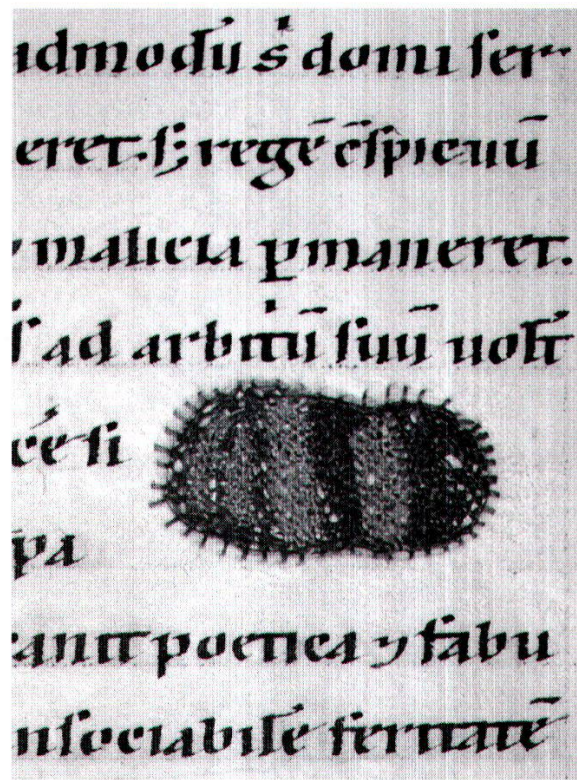 admodū s̓ domi ſer-
eret. S; regē c̄ſpicuū
malicia ꝑmaneret.
ſ ad arbitⁱū ſuū uolt̄
cē ſi
pa
cantͥ poetica ⁊ fabu
nſociabilē feritatē